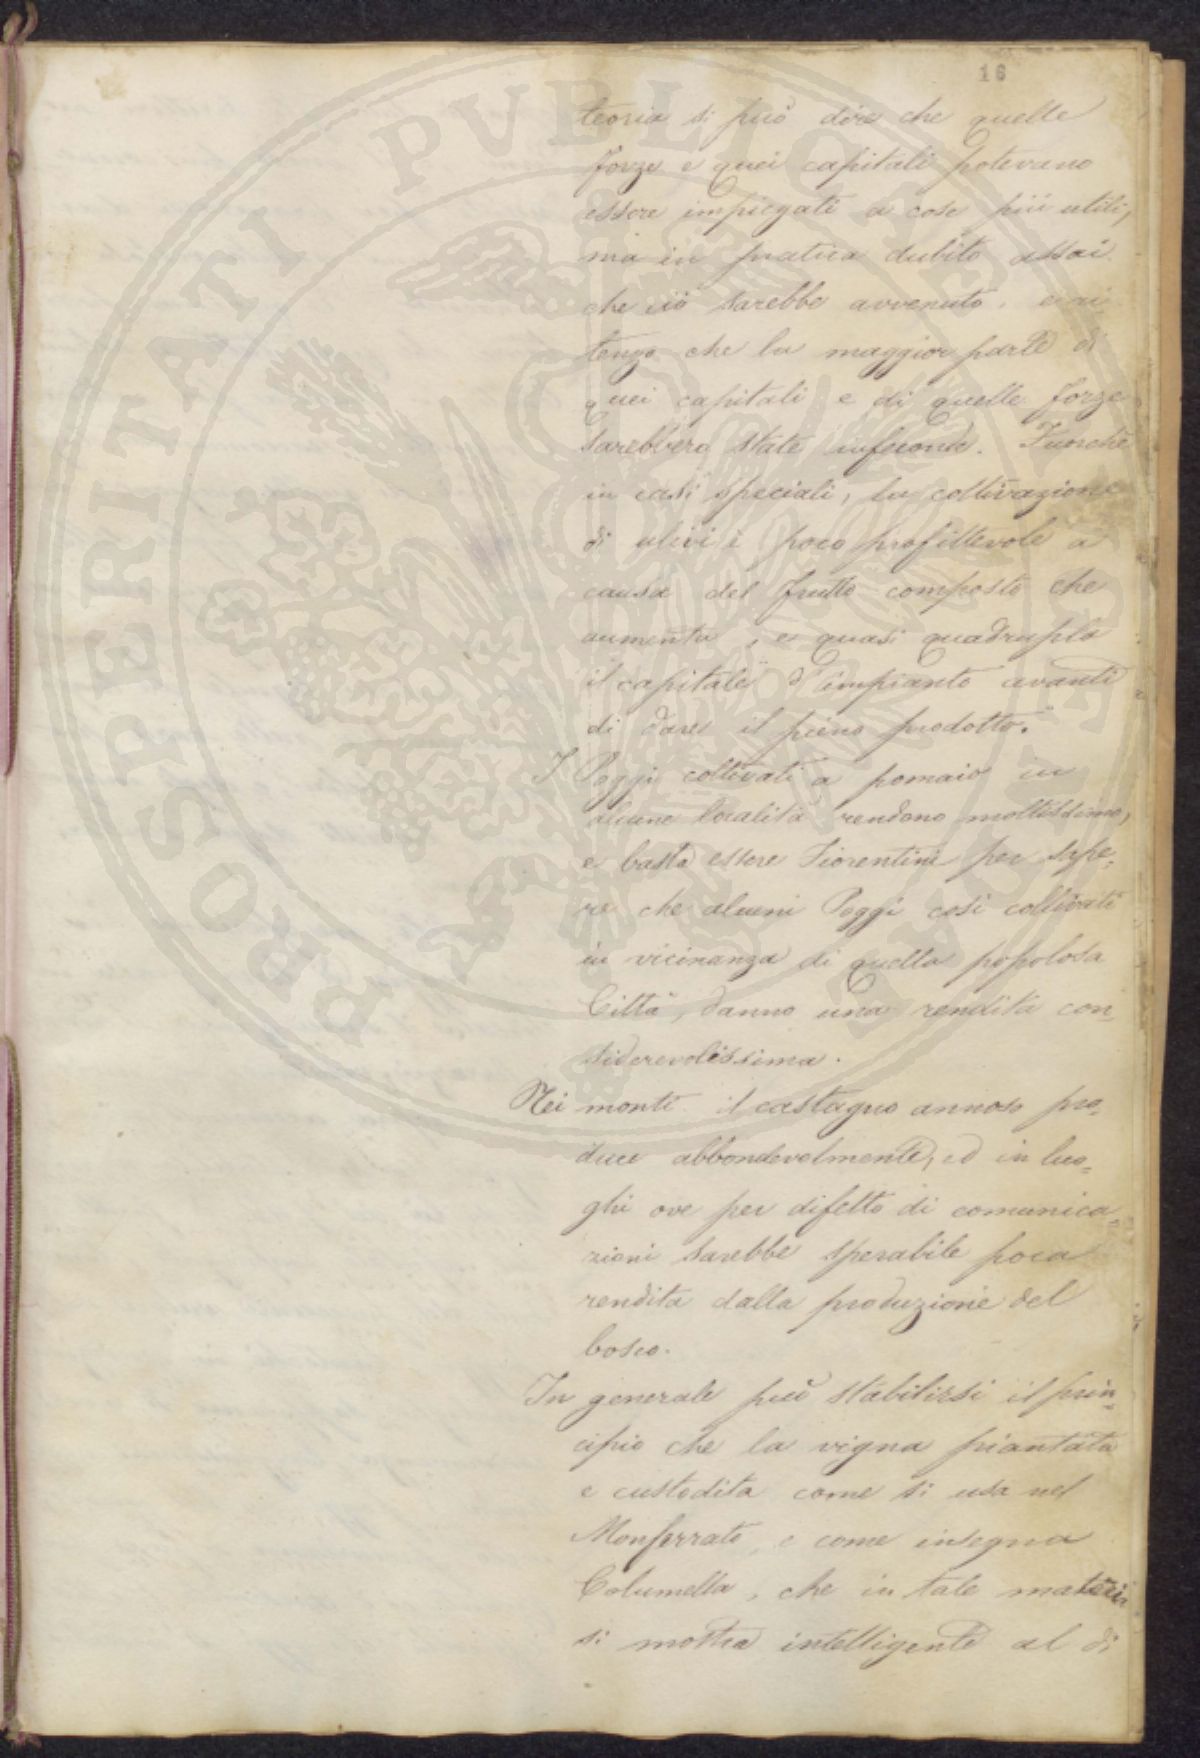 16
teoria si può dire che quelle
forze e quei capitali potevano
essere impiegati a cose più utili,
ma in pratica dubito assai
che ciò sarebbe avvenuto, e ri
tengo che la maggior parte di
quei capitali e di quelle forze
sarebbero state infeconde. Fuorchè
in casi speciali, la coltivazione
di ulivi è poco profittevole a
causa del frutto composto che
aumenta, e quasi quadrupla
il capitale d'impianto avanti
di dare il pieno prodotto.
I Poggi coltivati a pomaio in
alcune località rendono moltissimo,
e basta essere Fiorentini per sape=
re che alcuni Poggi così coltivati
in vicinanza di quella popolosa
Città, danno una rendita con=
siderevolissima.
Nei monti il castagno annoso pro=
duce abbondevolmente, ed in luo=
ghi ove per difetto di comunica=
zioni sarebbe sperabile poca
rendita dalla produzione del
bosco.
In generale può stabilirsi il prin=
cipio che la vigna piantata
e custodita come si usa nel
Monferrato, e come insegna
Columella, che in tale materia
si mostra intelligente al di
PROSPERITATI PVBLICAE